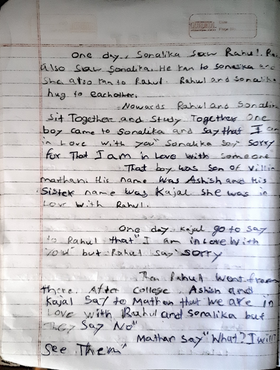 One day, Sonalika saw Rahul.
also saw Sonalika. He ran to Sonalika and
She also ran to Rahul. Rahul and Sonalika
hug to eachother.
Nowards Rahul and Sonalika
sit Together and study Together One
boy came to Sonalika and say that "I am
in Love with you" Sonalika say "Sorry
for That I am in Love with someone
That boy was son of Villin
matham. His name was Ashish and his
Sister name was Kajal she was in
Love with Rahul.
One day kajal go to say
to Rahul that "I am in Love with
you" but Rahul say "Sorry"
Rahul went from
there. After College Ashish and
Kajal say to Mathan that we are in
Love with Rahul and Sonalika but
They say No"
Mathan say "What? I will
see Them"